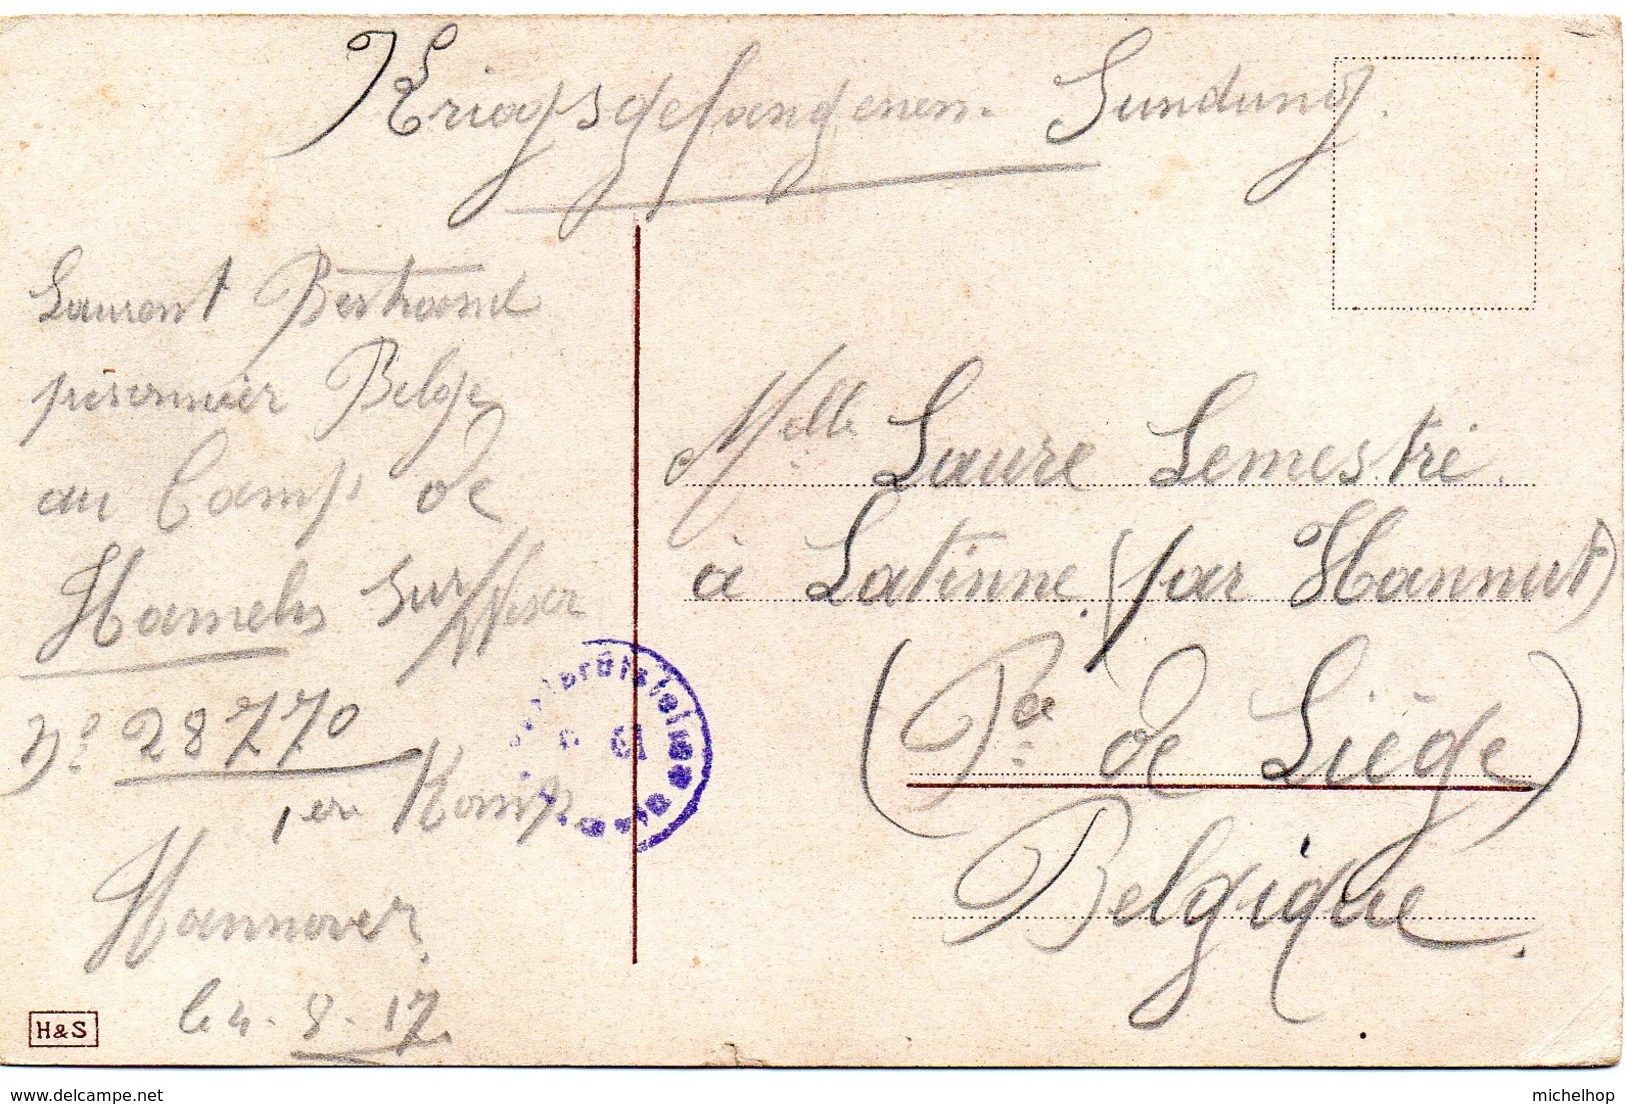 Kriegsgefangenen. Sundung.
Laurent Bertrand
prisonnier Belge
au Camp de
Hameln sur Weser
N° 28770
1ère Komp.
Hannover.
le 4-8-17
Melle Laure Lemestré.
à Latinne. (par Hannut)
(Pce de Liége)
Belgique.
H&S
delcampe.net
michelhop